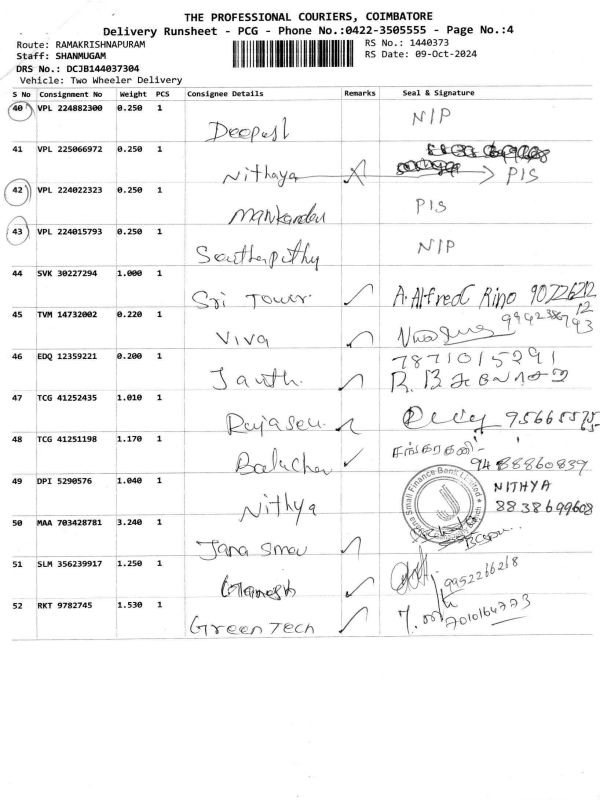 THE PROFESSIONAL COURIERS, COIMBATORE
Delivery Runsheet - PCG - Phone No.:0422-3505555 - Page No.:4
Route: RAMAKRISHNAPURAM
RS No.: 1440373
Staff: SHANMUGAM
RS Date: 09-Oct-2024
DRS No.: DCJB144037304
Vehicle: Two Wheeler Delivery
S No Consignment No Weight PCS Consignee Details Remarks Seal & Signature
40 VPL 224882300 0.250 1
NIP
41 VPL 225066972 0.250 1
Nithaya PIS
42 VPL 224022323 0.250 1
PIS
43 VPL 224015793 0.250 1
NIP
44 SVK 30227294 1.000 1
Sri Tower A. Alfred Rino
45 TVM 14732002 0.220 1
Viva
46 EDQ 12359221 0.200 1
7871015291
47 TCG 41252435 1.010 1
48 TCG 41251198 1.170 1
9488860839
49 DPI 5290576 1.040 1
Nithya NITHYA
8838699608
Small Finance Bank Limited
50 MAA 703428781 3.240 1
51 SLM 356239917 1.250 1
Ganesh 9952266268
52 RKT 9782745 1.530 1
Green Tech 7010164773